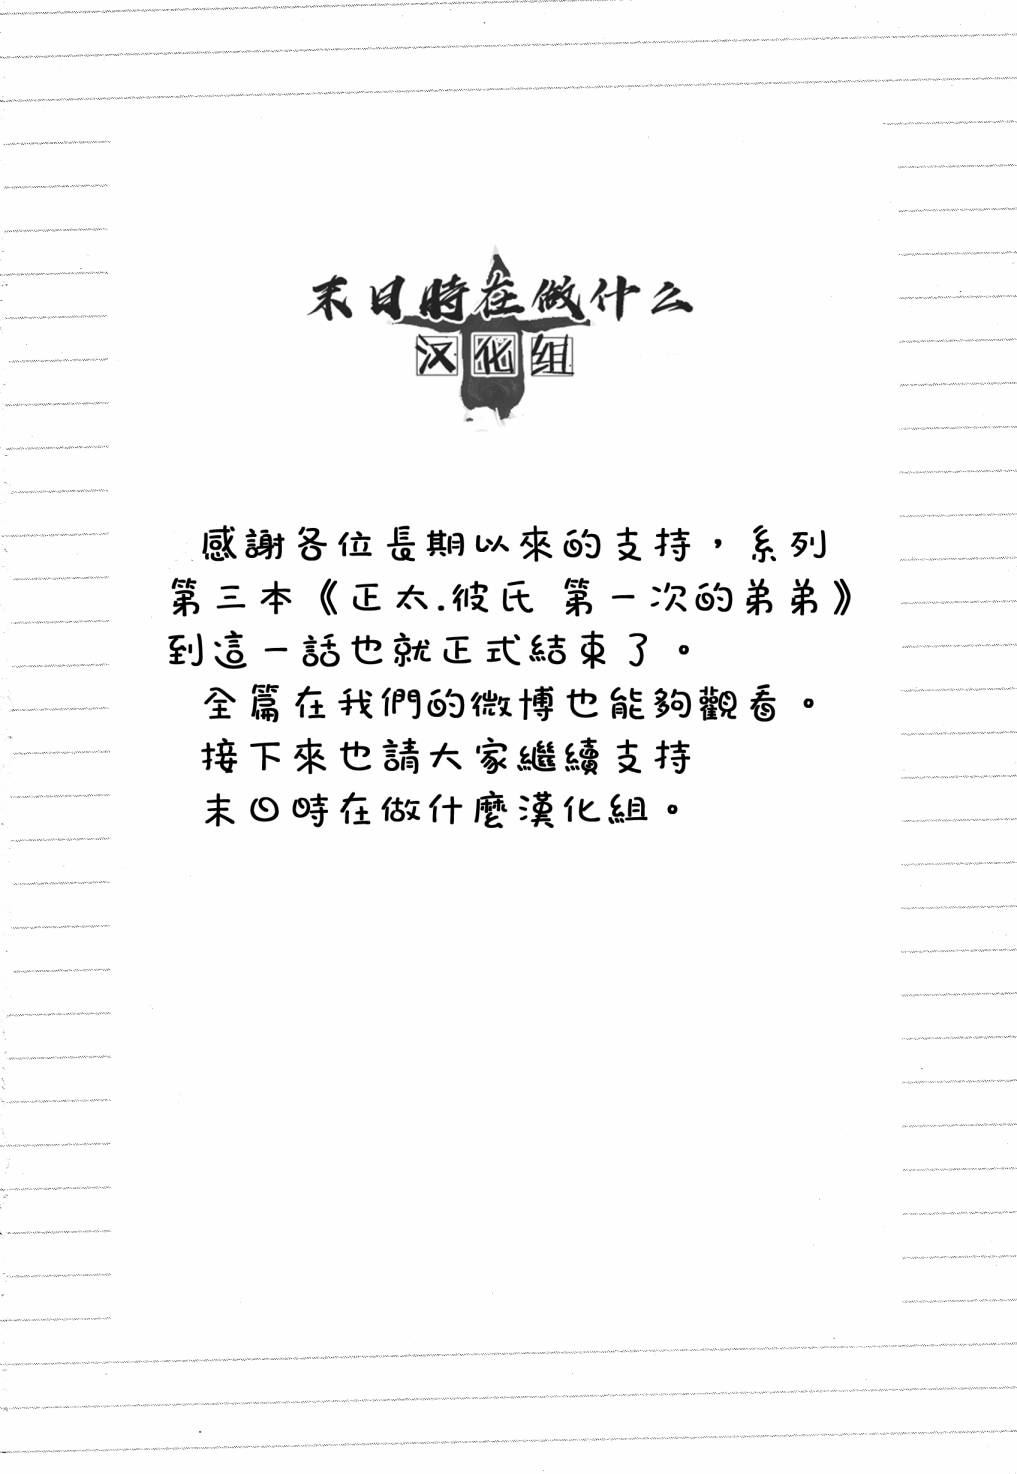 末日時在做什么
汉化组
感謝各位長期以來的支持，系列
第三本《正太.彼氏 第一次的弟弟》
到這一話也就正式結束了。
全篇在我們的微博也能夠觀看。
接下來也請大家繼續支持
末日時在做什麼漢化組。